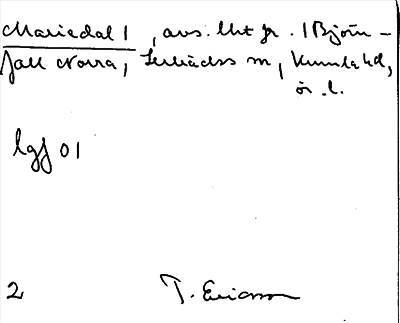 Mariedal 1, avs. lht fr. 1 Björn-
fall Norra, Lerbäcks sn, Kumla hd,
ör. l.
lgf 01
2 T. Ericsson